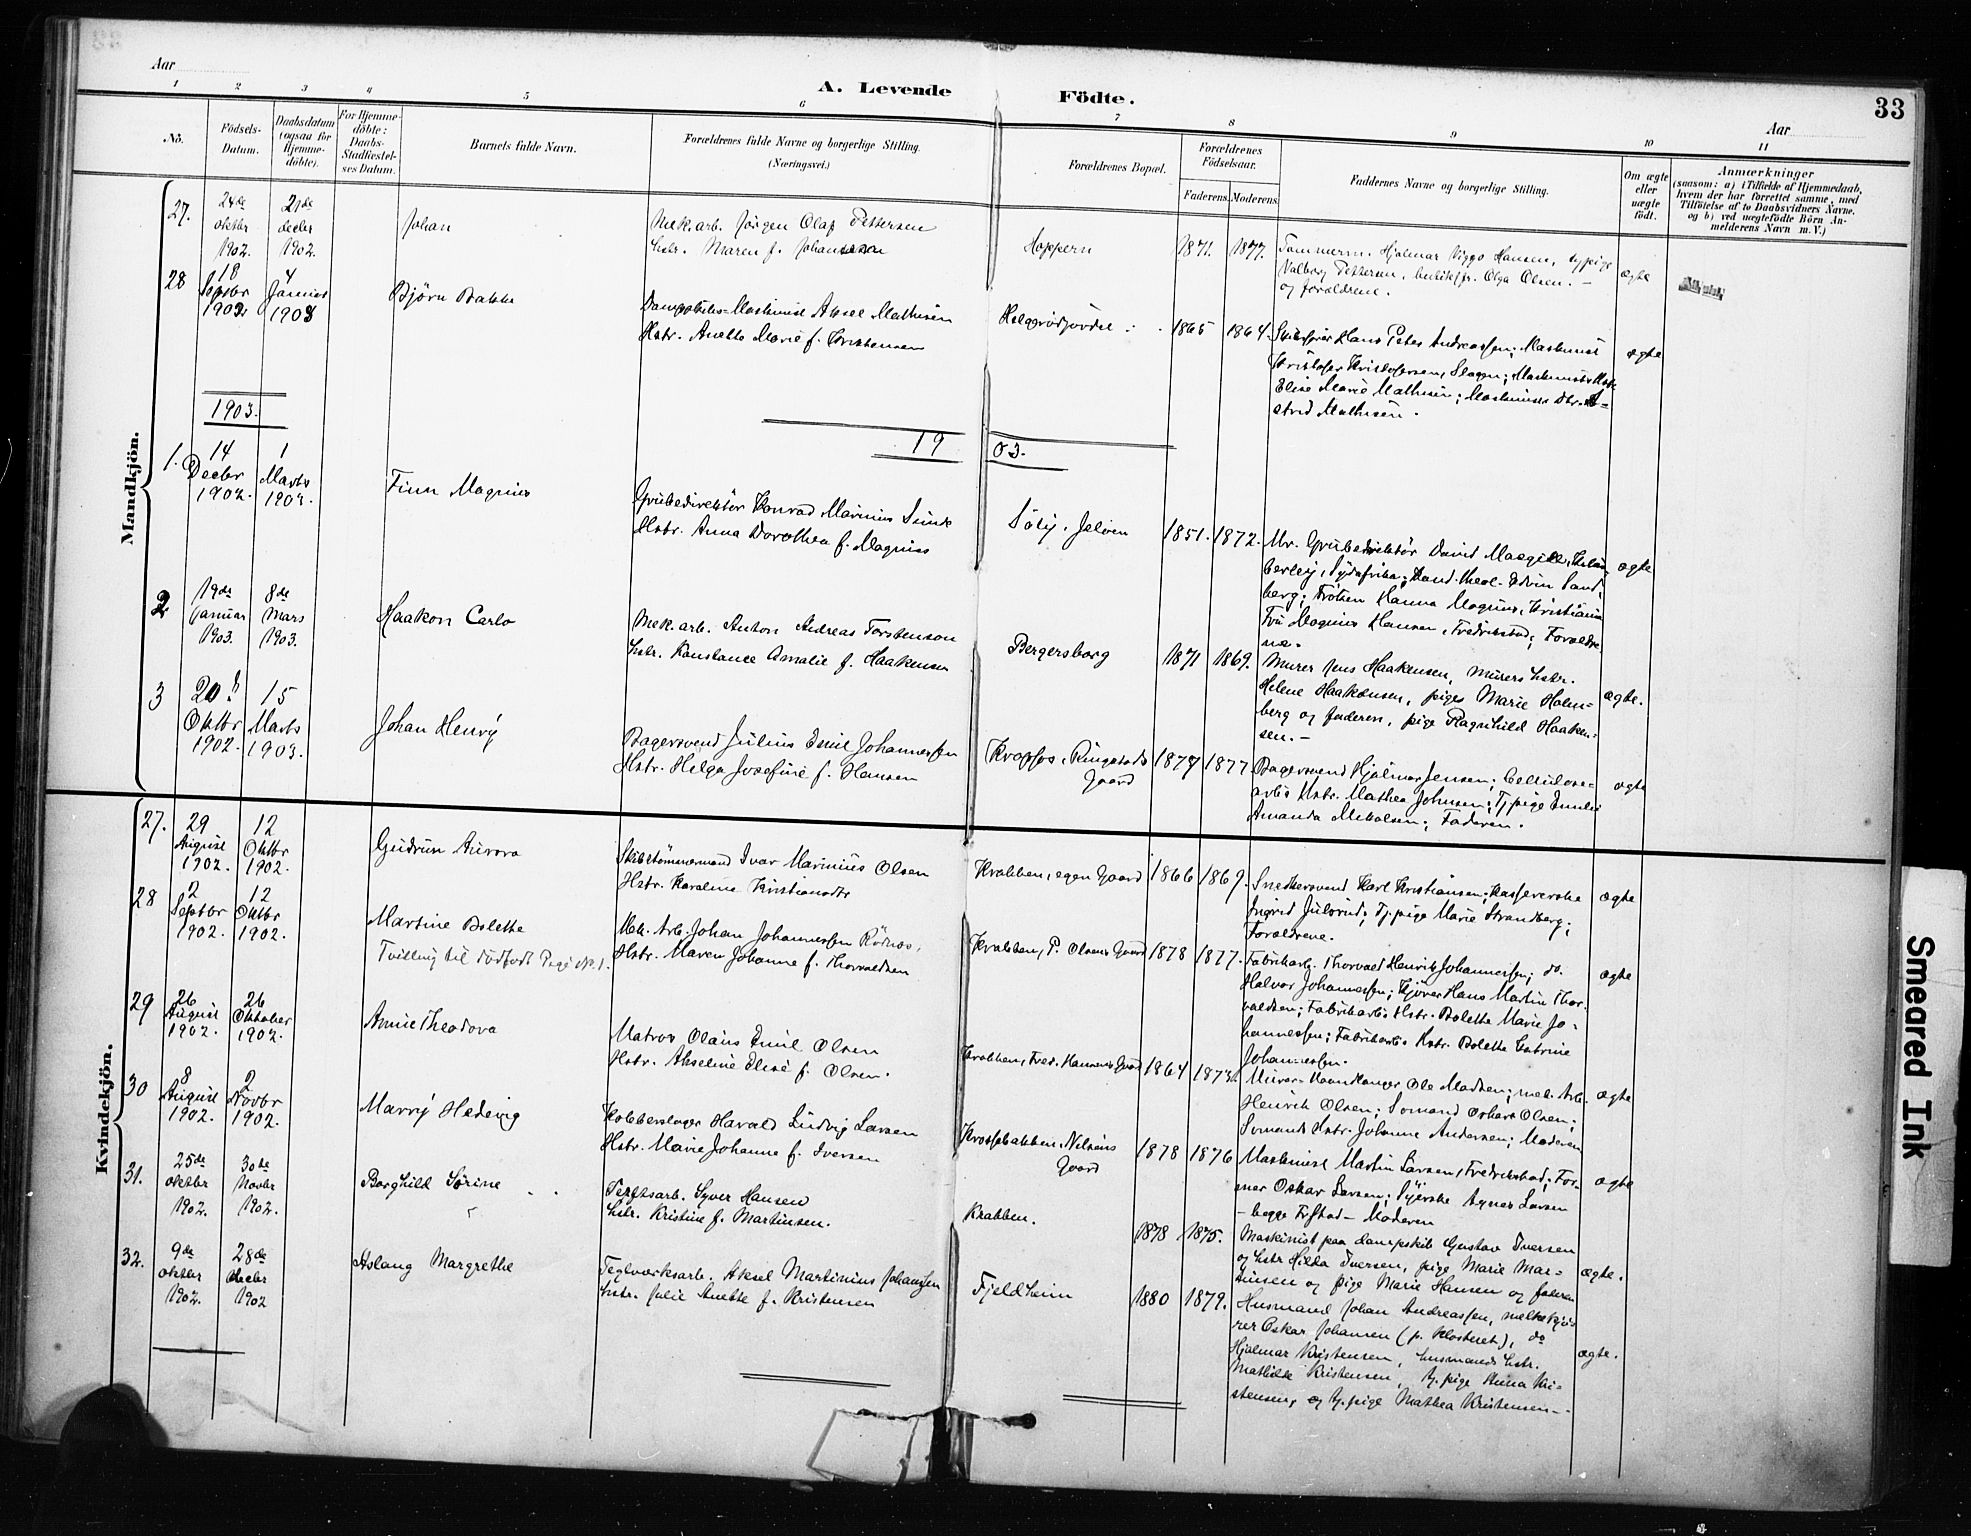 33
Aar
A. Levende Födte.
Aar
1 2 3 4 5 6 7 8 9 10 11
No.
Födsels-Datum.
Daabsdatum (ogsaa for Hjemme-döbte).
For Hjemme-döbte: Daabs-Stadfæstel-ses Datum.
Barnets fulde Navn.
Forældrenes fulde Navne og borgerlige Stilling.
(Næringsvei.)
Forældrenes Bopæl.
Forældrenes Födselsaar.
Faderens. Moderens.
Faddernes Navne og borgerlige Stilling.
Om ægte eller uægte födt.
Anmærkninger
(saasom: a) i Tilfælde af Hjemmedaab,
hvem der har forrettet samme, med
Tilföielse af to Daabsvidners Navne.
og b) ved uægtefödte Börn An-
melderens Navn m. V.)
Mandkjön.
27.
24de oktbr 1902.
21de decbr 1902.
Johan
Mek.arb. Jörgen Olaf Pettersen
hstr. Maren f. Johansen
Hoppern
1871. 1877.
Tømmerm. Hjalmar Viggo Hansen, sypige
Valborg Pettersen, butikfr. Olga Olsen. -
og forældrene.
ægte
28
18 Septbr 1902
4 Januar 1903
Björn Bakke
Dampskibs-Maskinist Aksel Mathisen
Hstr. Anette Marie f. Kristensen
1865 1864.
Skibsförer Hans Peter Andreassen; Maskinist
Kristofer Kristofersen, Slagen; Maskinists Hstr.
Elise Marie Mathisen; Maskinists Dtr. A-
strid Mathisen.
ægte
1903.
19 03.
1.
14 Decbr 1902.
1 Marts 1903.
Finn Magnus
Grubedirektör Konrad Marinius Sunde
Hstr. Anna Dorothea f. Magnus
Jelöen
1851. 1872.
Mr. Grubedirektör David Macgill, Kim-
berley, Sydafrika; Kand. theol. Edvin Sand-
berg; Fröken Hanna Magnus, Kristiania
Fru Magnus Hansen, Fredrikstad; Forældre-
ne.
ægte
2
19de Januar 1903.
8de Mars 1903.
Haakon Carlo
Mek.arb. Anton Andreas Torstenson
hstr. Konstance Amalie f. Haakensen
Bergersborg
1871 1869.
Murer Jens Haakensen, murers hstr.
Helene Haakensen, piges Marie Holm-
berg og faderen, pige Ragnhild Haaken-
sen. -
ægte.
3
20 Oktbr 1902.
15 Marts 1903.
Johan Henry
Bagersvend Julius Emil Johannessen
Hstr. Helga Josefine f. Hansen
Kropfos, Ringstads
Gaard
1877 1877
Bagersvend Hjalmar Jensen; Cellulose-
arbs Hstr. Mathea Johnsen; Tj.pige Emilie
Amanda Mikalsen; Faderen.
ægte
Kvindekjön.
27.
29 August 1902.
12 Oktbr 1902.
Gudrun Aurora
Skibstömmermand Ivar Marinius Olsen
Hstr. Karoline Kristiansdtr
Krabben, egen Gaard
1866 1869.
Snedkersvend Karl Kristiansen; Kassererske
Ingrid Julsrud; Tj.pige Marie Strandberg;
Forældrene.
ægte
28
2 Septbr 1902.
12 Oktbr 1902.
Martine Bolette
Tvilling til dödfödt Pige No. 1.
Mek. Arb. Johan Johannessen Rödnes,
Hstr. Maren Johanne f. Thorvaldsen
Krabben, P. Olsens Gaard
1878 1877.
Fabrikarb. Thorvald Henrik Johannessen; do.
Halvor Johannessen; Kjörer Hans Martin Thor-
valdsen; Fabrikarbs Hstr. Bolette Marie Jo-
hannessen; Fabrikarbs Hstr. Bolette Katrine
Johannessen.
ægte
29
26 August 1902.
26 Oktober 1902.
Annie Theodora
Matros Olaus Emil Olsen
Hstr. Akseline Elise f. Olsen.
Krabben, Fred. Hansens Gaard
1864 1873.
Murer-Haandlanger Ole Madsen; mek. Arb.
Henrik Olsen; Sömand Oskar Olsen;
Sömands Hstr. Johanne Andersen; Moderen
ægte
30
8 August 1902.
2 Novbr 1902.
Marry Hedevig
Kobberslager Harald Ludvig Larsen
Hstr. Marie Johanne f. Iversen
Krossebakken, Nilsens
Gaard
1878 1876
Maskinist Martin Larsen, Fredrikstad; For-
mer Oskar Larsen; Syerske Agnes Larsen
- begge Fr.stad - Moderen
ægte
31.
25de oktbr 1902.
30de Novbr 1902.
Borghild Sörine
Teglværksarb. Syver Hansen
hstr. Kristine f. Martinsen.
Krabben.
1878 1875.
Maskinist paa dampskib Gustav Iversen
og hstr Hilda Iversen, pige Marie Mar-
tinsen og pige Marie Hansen og faderen
ægte.
32.
9de oktbr 1902.
28de decbr 1902
Aslaug Margrethe
Teglværksarb. Aksel Martinius Johansen
hstr. Julie Anette f. Kristensen
Fjeldheim
1880 1879.
Husmand Johan Andreassen, melkekjö-
rer Oskar Johansen (p. Klosteret), do
Hjalmar Kristensen, husmands hstr.
Mathilde Kristensen, tj. pige Anna Kri-
stensen, og tj.pige Mathea Kristensen -
ægte.
Smeared Ink